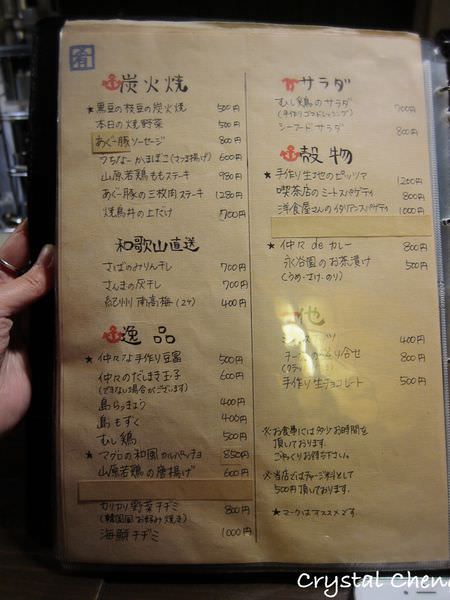 肴
炭火焼
★黒豆の枝豆の炭火焼 500円
本日の焼野菜 500円
あぐー豚ソーセージ 800円
うちなーかまぼこ(さつま揚げ) 600円
山原若鶏ももステーキ 980円
あぐー豚の三枚肉ステーキ 1280円
焼鳥丼の上だけ 700円
和歌山直送
さばのみりん干し 700円
さんまの灰干し 700円
紀州南高梅(2ケ) 400円
逸品
★仲々な手作り豆富 500円
仲々のだしまき玉子 600円
(できない場合がございます)
島らっきょう 400円
島もずく 400円
むし鶏 500円
★マグロの和風カルパッチョ 850円
山原若鶏の唐揚げ 600円
カリカリ野菜チヂミ 800円
(韓国風お好み焼き)
海鮮チヂミ 1000円
サラダ
むし鶏のサラダ 700円
(手作りゴマドレッシング)
シーフードサラダ 800円
殻物
★手作り生させのピッツア 1200円
喫茶店のミートスパゲティ 800円
洋食屋さんのイタリアンスパゲティ 1000円
★仲々deカレー 800円
永谷園のお茶漬け 500円
(うめ・さけ・のり)
他
400円
チーズの盛り合せ 800円
手作り生チョコレート 500円
※お食事には多少お時間を
頂いております。
ごゆっくりお待ち下さい。
※当店ではチャージ料として
500円頂いております。
★マークはオススメです。
Crystal Chen